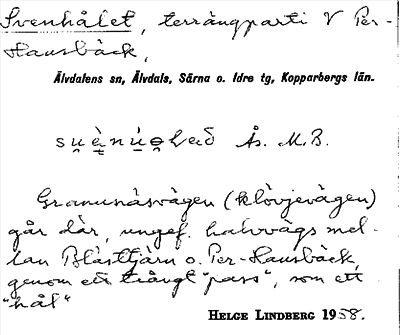 Svenhålet, terrängparti V Per-
Hansbäck,
Älvdalens sn, Älvdals, Särna o. Idre tg, Kopparbergs län.
Ås. M.B.
Granunäsvägen (klövjevägen)
går där, ungef. halvvägs mel-
lan Blästtjärn o. Per-Hansbäck,
genom ett trångt "pass", som ett
"hål"
HELGE LINDBERG 1958.